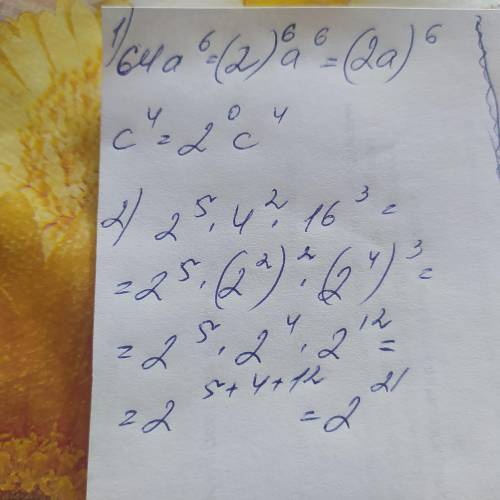 1) 64a⁶=(2)⁶a⁶=(2a)⁶
c⁴=2⁰c⁴
2) 2⁵·4²·16³=
=2⁵·(2²)²·(2⁴)³=
=2⁵·2⁴·2¹²=
=2⁵⁺⁴⁺¹²=2²¹